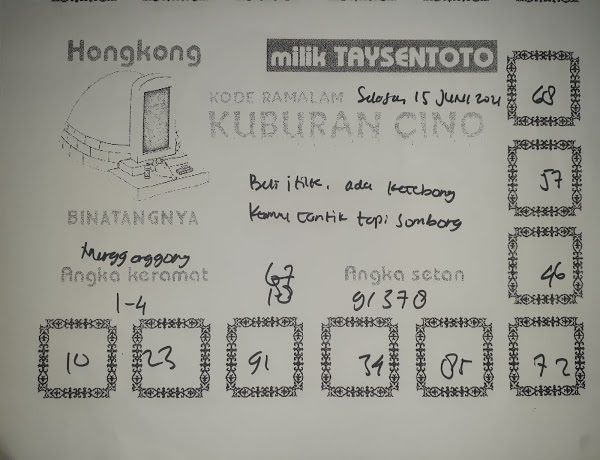 Hongkong
milik TAYSENTOTO
KODE RAMALAM Selasa, 15 Juni 2021
KUBURAN CINO
68
57
46
Beli itik, ada
Kamu cantik tapi sombong
BINATANGNYA
Angka keramat
1-4
67
Angka setan
91370
10
23
91
34
85
72